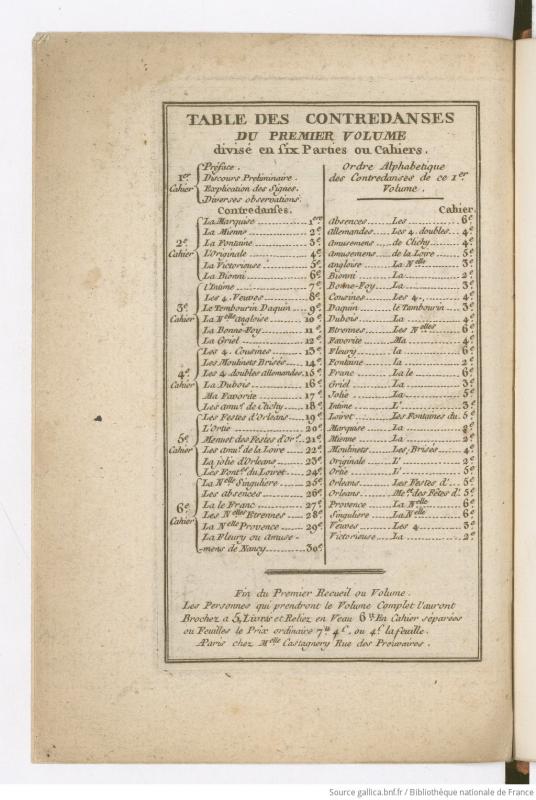 TABLE DES CONTREDANSES
DU PREMIER VOLUME
divisé en six Parties ou Cahiers.
1er Cahier
Préface.
Discours Preliminaire.
Explication des Signes.
Diverses observations.
Contredanses.
La Marquise 1ere
La Mienne 2e
2e Cahier
La Fontaine 3e
L'Originale 4e
La Victorieuse 5e
La Bionni 6e
L'Intime 7e
Les 4. Veuves 8e
3e Cahier
Le Tambourin Daquin 9e
La Nelle angloise 10e
La Bonne-Foy 11e
La Griel 12e
Les 4. Cousines 13e
Les Moulinets Brisés 14e
4e Cahier
Les 4. doubles allemandes 15e
La Dubois 16e
Ma Favorite 17e
Les amus. de Clichy 18e
Les Festes d'Orleans 19e
L'Ortie 20e
5e Cahier
Menuet des Festes d'Or. 21e
Les amus. de la Loire 22e
La jolie d'Orleans 23e
Les Font. du Loiret 24e
La Nelle Singuliere 25e
Les absences 26e
6e Cahier
La le Franc 27e
Les Nelles Etrennes 28e
La Nelle Provence 29e
La Fleury ou Amuse-
mens de Nancy 30e
Ordre Alphabetique
des Contredanses de ce 1er
Volume.
Cahier.
Absences Les 6e
Allemandes Les 4. doubles 4e
Amusemens de Clichy 4e
Amusemens de la Loire 5e
angloise La Nelle 3e
Bionni La 2e
Bonne-Foy La 3e
Cousines Les 4. 4e
Daquin le Tambourin 3e
Dubois La 4e
Etrennes Les Nelles 6e
Favorite Ma 4e
Fleury la 6e
Fontaine La 2e
Franc La le 6e
Griel La 3e
Jolie La 5e
Intime L' 3e
Loiret Les Fontaines du 5e
Marquise La 2e
Mienne La 2e
Moulinets Les Brisés 4e
Originale L' 2e
Ortie L' 5e
Orleans Les Festes d' 5e
Orleans Met. des Fêtes d' 5e
Provence La Nelle 6e
Singuliere La Nelle 6e
Veuves Les 4 3e
Victorieuse La 2e
Fin du Premier Recueil ou Volume.
Les Personnes qui prendront le Volume Complet l'auront
Brochez a 5. Livres et Reliez en Veau 6tt En Cahier séparées
ou Feuilles le Prix ordinaire 7tt 4s. ou 4s. la feuille.
A Paris chez Melle Castagnery Rue des Prouvaires.
Source gallica.bnf.fr / Bibliothèque nationale de France